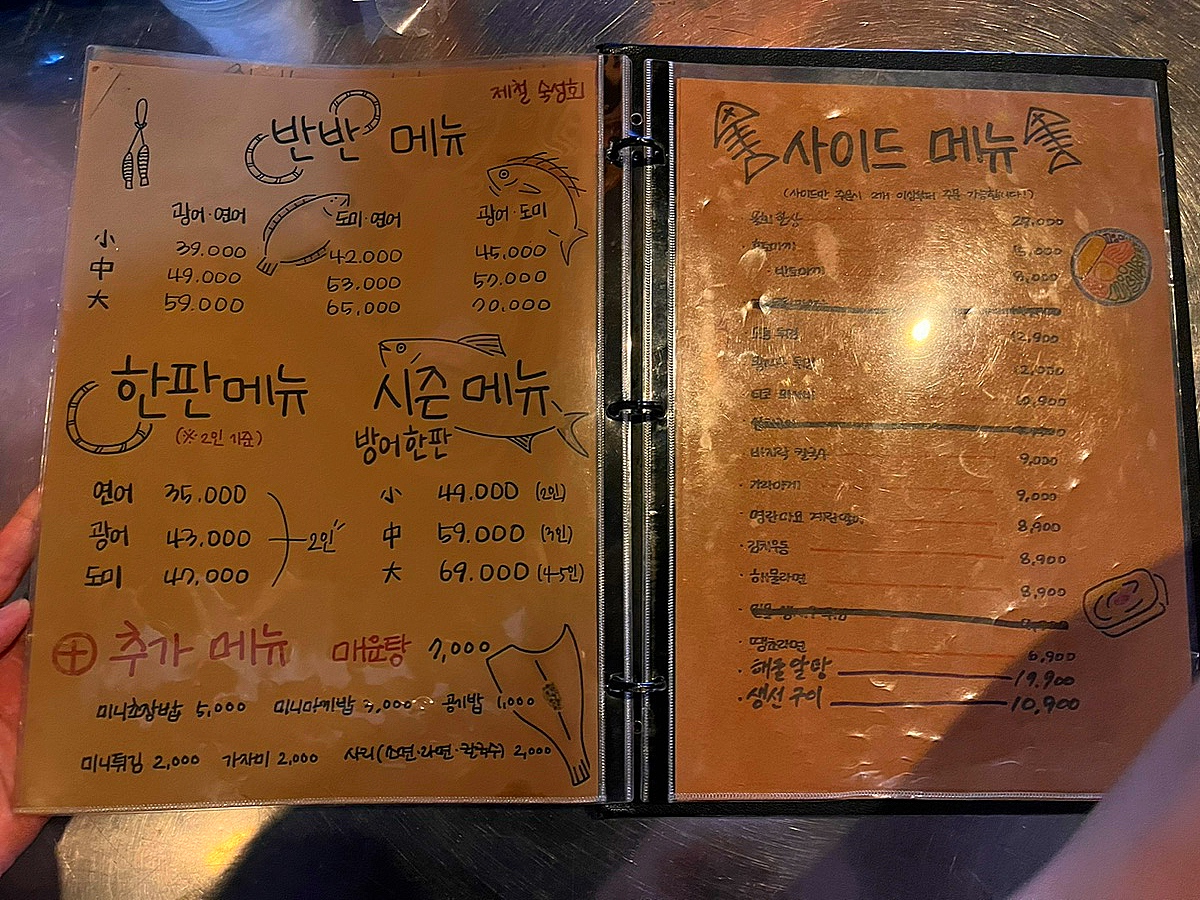 제철 숙성회
반반 메뉴
광어·연어 도미·연어 광어·도미
小 39.000 42.000 45,000
中 49.000 53.000
大 59.000 65,000 70,000
한판메뉴
(※2인 기준)
연어 35.000
광어 43.000
도미
2인
시즌 메뉴
방어한판
小 49.000 (2인)
中 59.000 (3인)
大 69.000 (4-5인)
추가 메뉴 매운탕 7,000
미니초장밥 5,000 미니마끼밥 3,000 공기밥 1,000
미니튀김 2,000 가자미 2,000 사리(소면·라면·칼국수) 2,000
사이드 메뉴
(사이드만 주문시 2개 이상부터 주문 가능합니다!)
8,000
12,900
12,000
바지락 칼국수 9,000
가라아게 9,000
명란마요 계란말이 8,900
·김치우동 8,900
·해물라면 8,900
·땡초라면 6,900
·해물알탕 19.900
·생선구이 10,900